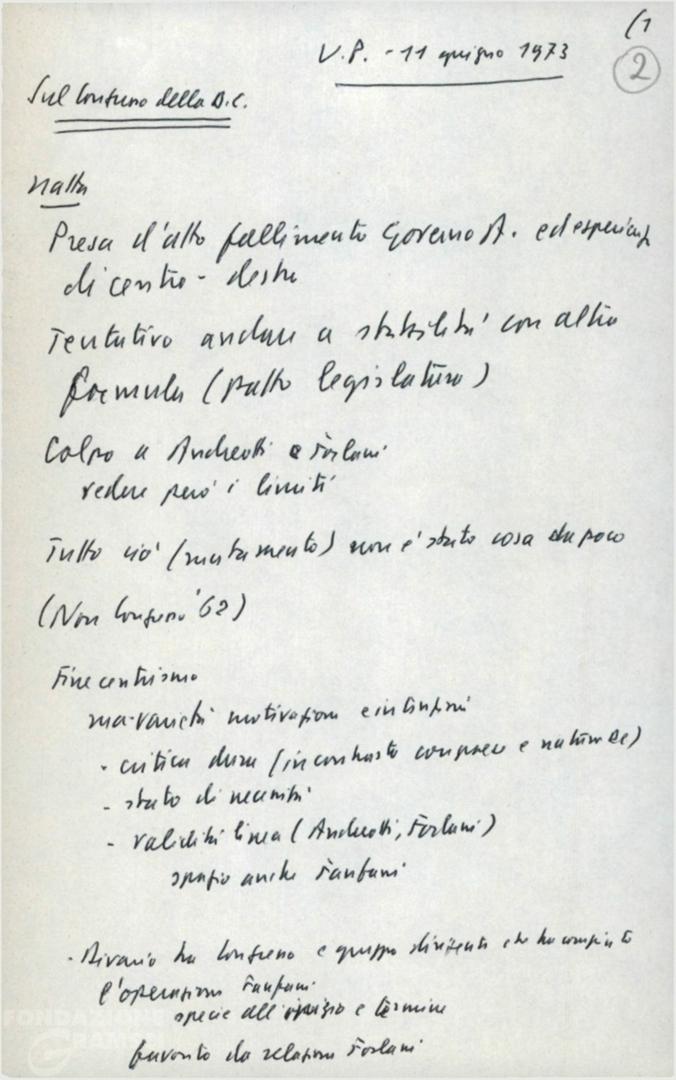 (1
U.P. - 11 giugno 1973
2
Sul Congresso della D.C.
Natta
Presa d'atto fallimento Governo A. ed esperienza
di centro-destra
Tentativo andare a stabilità con altra
formula (patto legislatura)
Colpo a Andreotti e Forlani
vedere però i limiti
Tutto ciò (mutamento) non è stato cosa da poco
(Non Congresso '62)
Fine centrismo
ma varietà motivazioni e intenzioni
- critica dura (in contrasto con paese e natura DC)
- stato di necessità
- validità linea (Andreotti, Forlani)
spazio anche Fanfani
- Divario tra Congresso e gruppo dirigente che ha compiuto
l'operazione Fanfani
specie all'inizio e termine
favorito da relazione Forlani
FONDAZIONE
GRAMSCI